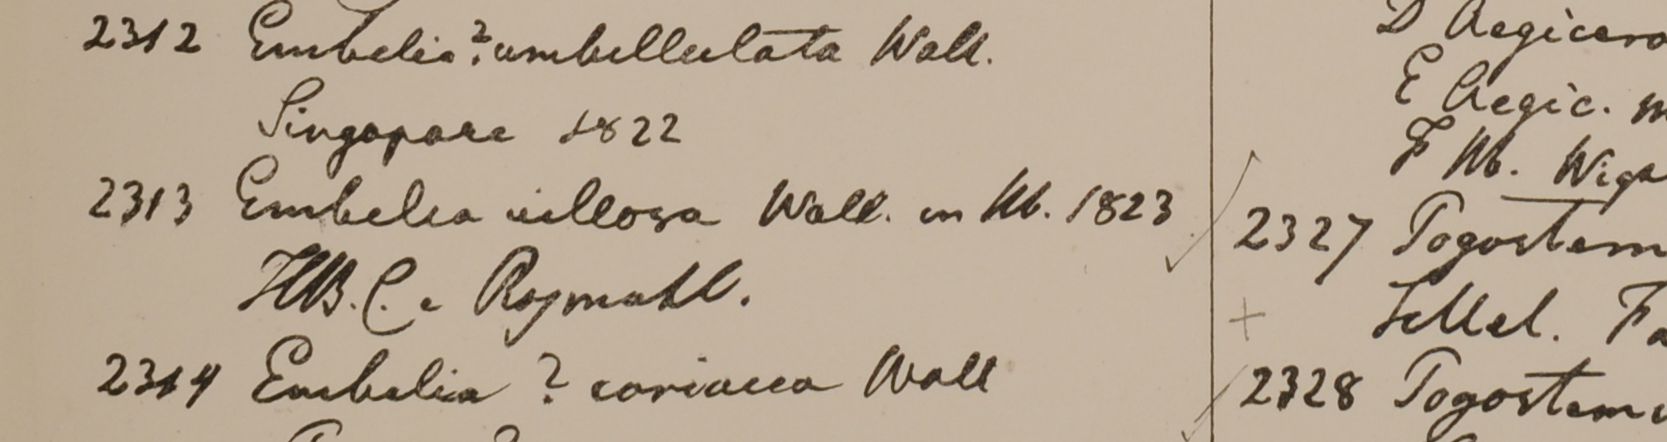 2312 Embelia? umbellulata Wall.
Singapore 1822
2313 Embelia villosa Wall. in Hb. 1823
HB.C. e Rajmahl.
2314 Embelia ? coriacea Wall
D Aegicera
E Aegic. m
F Hb. Wigh
2327 Pogostem
+ Fa
2328 Pogostem